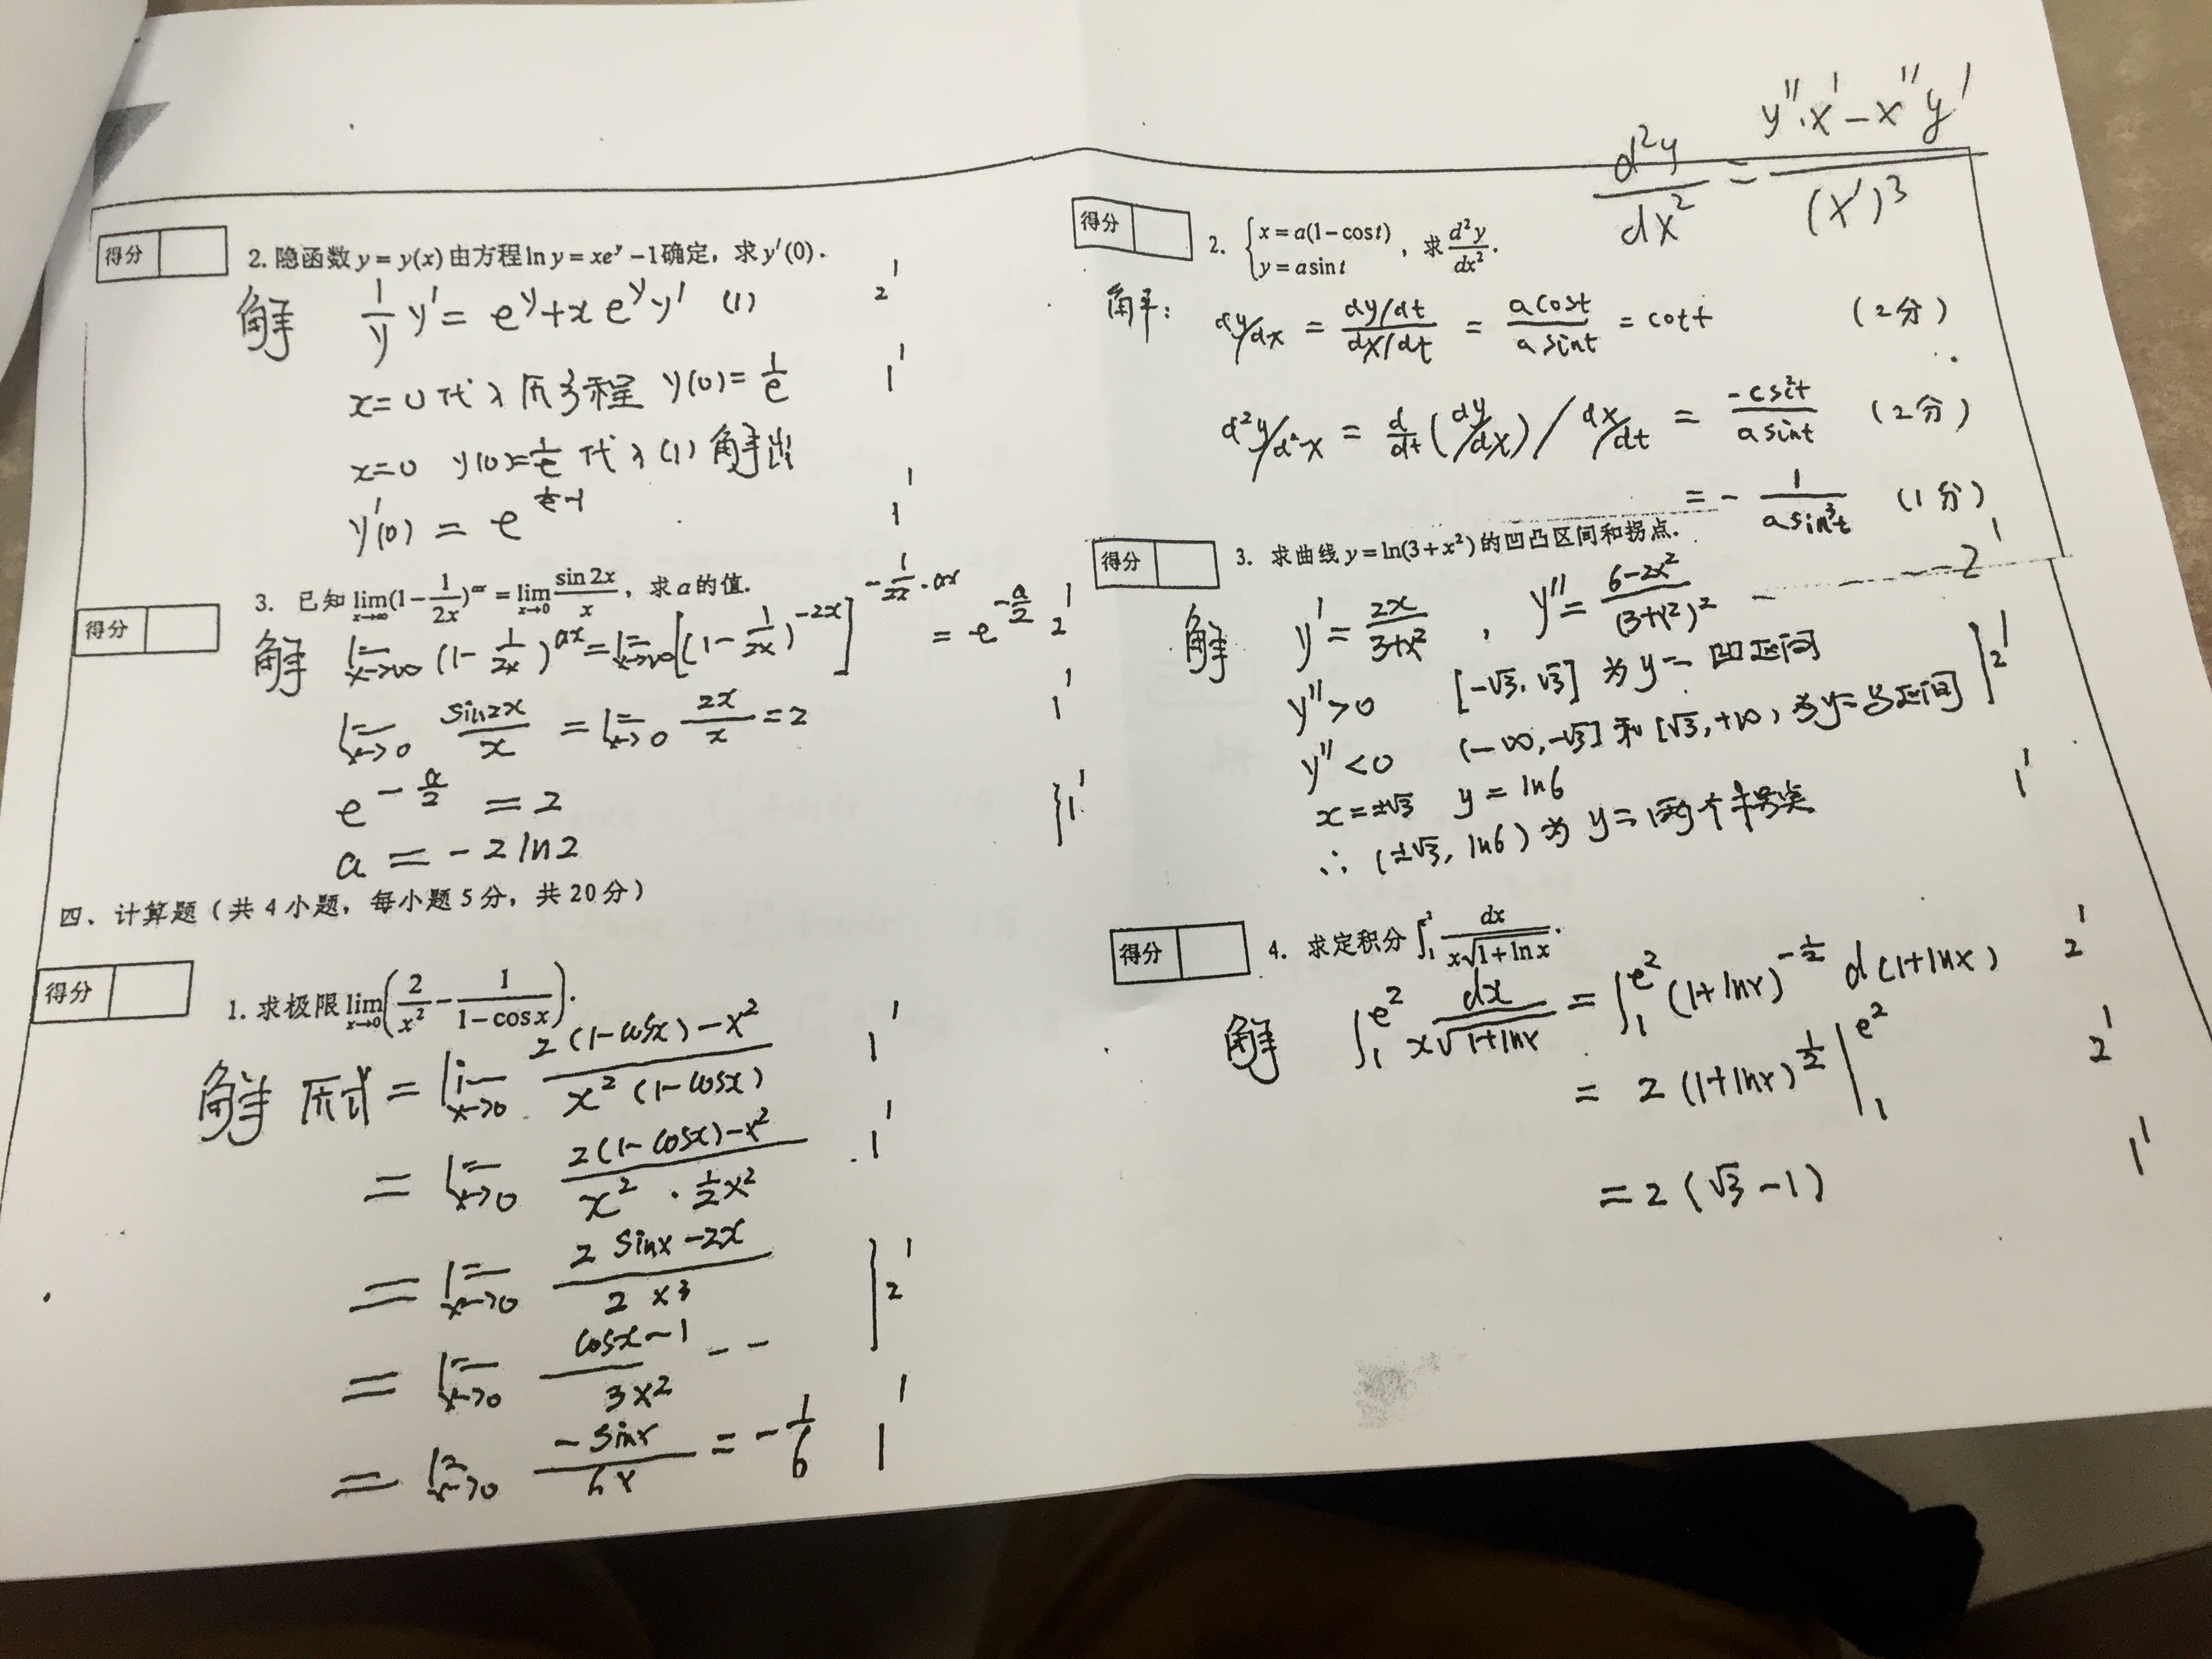 得分
2. 隐函数 y = y(x) 由方程 ln y = xe^y − 1 确定，求 y′(0).
解 1/y y′ = e^y + x e^y y′ (1) 2′
x=0 代入原方程 y(0) = 1/e 1′
x=0 y(0)=1/e 代入(1) 解出
y′(0) = e^(1/e −1) 1′
得分
3. 已知 lim_{x→∞}(1 − 1/2x)^{ax} = lim_{x→0} sin2x/x，求 a 的值.
解 lim_{x→∞} (1 − 1/2x)^{ax} = lim_{x→∞} [(1 − 1/2x)^{−2x}]^{−1/2x · ax} = e^{−a/2} 2′
lim_{x→0} sin2x/x = lim_{x→0} 2x/x = 2 1′
e^{−a/2} = 2
a = −2 ln2 1′
四、计算题（共 4 小题，每小题 5 分，共 20 分）
得分
1. 求极限 lim_{x→0}(2/x² − 1/(1−cos x)).
解 原式 = lim_{x→0} (2(1−cosx)−x²)/(x²(1−cosx)) 1′
= lim_{x→0} (2(1−cosx)−x²)/(x² · ½x²) 1′
= lim_{x→0} (2 sinx −2x)/(2x³)
= lim_{x→0} (cosx −1)/(3x²) -- 2′
= lim_{x→0} (−sinx)/(6x) = −1/6 1′
d²y/dx² = (y″·x′ − x″y′)/(x′)³
得分
2. { x = a(1−cos t) y = a sin t ，求 d²y/dx².
解： dy/dx = (dy/dt)/(dx/dt) = a cost/a sint = cot t （2分）
d²y/d²x = d/dt (dy/dx) / dx/dt = −csc²t/a sint （2分）
= − 1/(a sin³t) （1分）
得分
3. 求曲线 y = ln(3 + x²) 的凹凸区间和拐点.
解 y′ = 2x/(3+x²) , y″ = (6−2x²)/(3+x²)² ---- 2′
y″>0 [−√3, √3] 为 y= 凹区间
y″<0 (−∞, −√3] 和 [√3, +∞) 为 y= 凸区间 2′
x=±√3 y = ln6
∴ (±√3, ln6) 为 y= 两个拐点 1′
得分
4. 求定积分 ∫₁^{e²} dx/(x√(1+ln x)).
解 ∫₁^{e²} dx/(x√(1+lnx)) = ∫₁^{e²} (1+lnx)^{−1/2} d(1+lnx) 2′
= 2(1+lnx)^{1/2} |₁^{e²} 2′
= 2(√3 −1) 1′